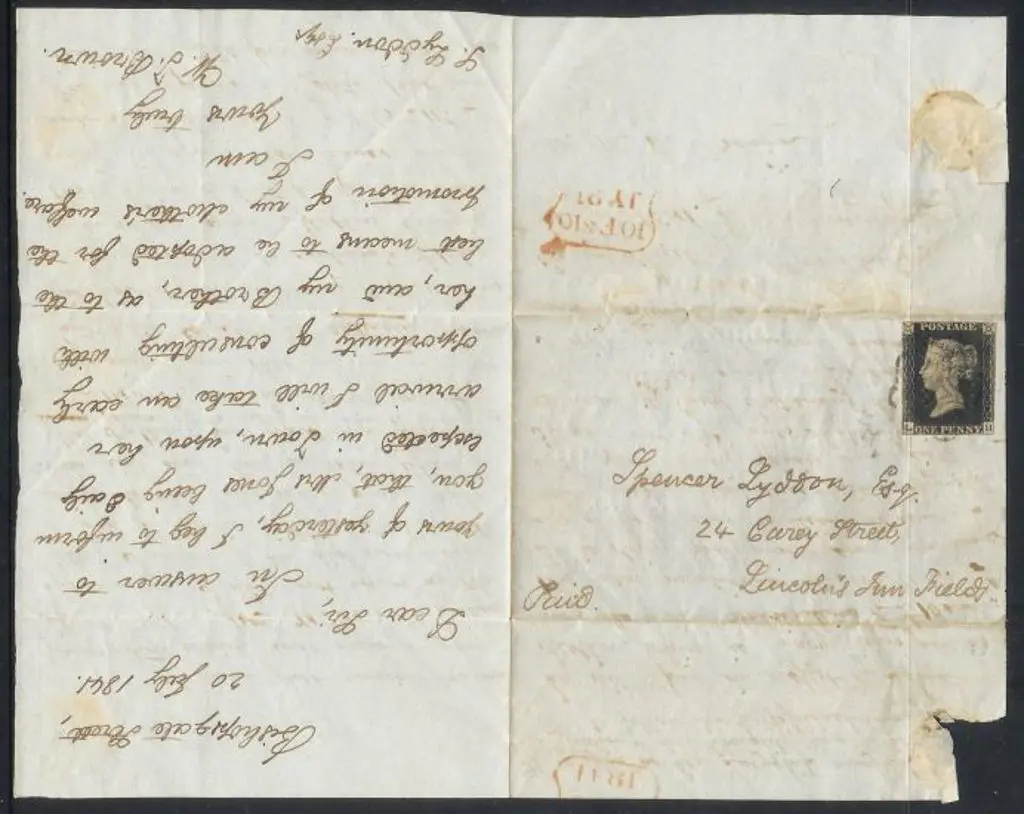 Bishopsgate Street,
20 July 1841.
Dear Sir,
In answer to
yours of yesterday, I beg to inform
you, that, Mrs Jones being daily
expected in Town, upon her
arrival I will take an early
opportunity of consulting with
her, and my Brother, as to the
best means to be adopted for the
promotion of my Mother's welfare.
I am
yours truly
W. J. Brown.
S. Lyddon. Esqr
10 F N 10
JY 20
POSTAGE
ONE PENNY
H
Spencer Lyddon, Esq.
24 Carey Street,
Lincoln's Inn Fields
Paid.